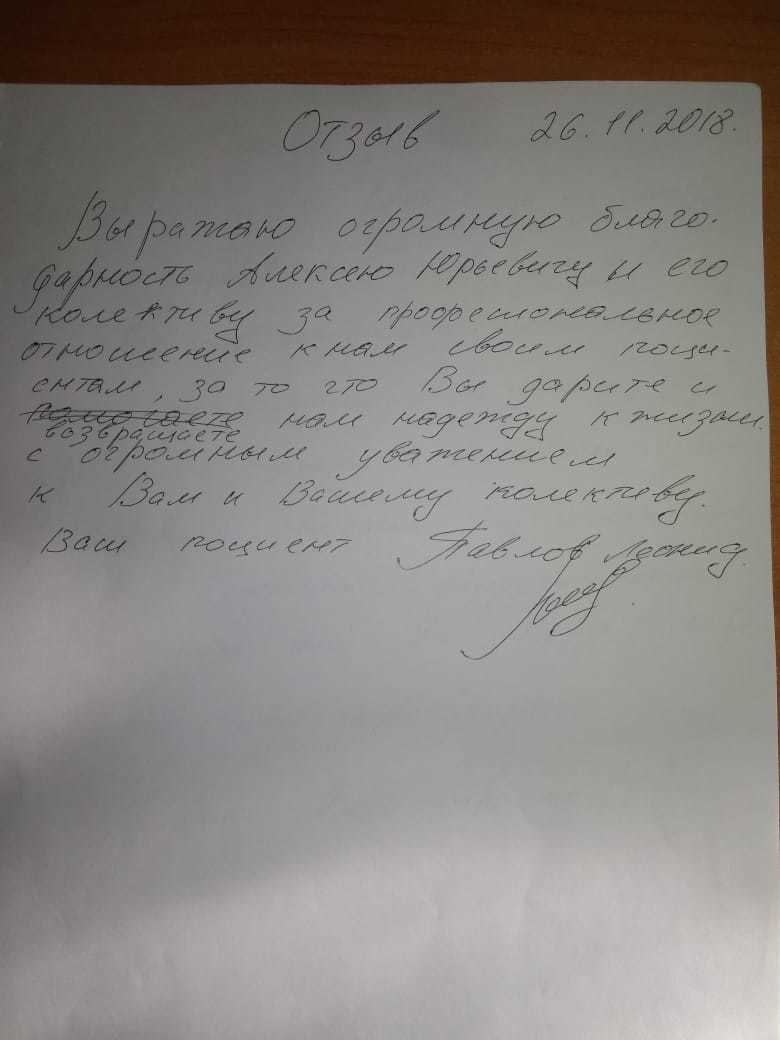 Отзыв 26.11.2018.
Выражаю огромную благо-
дарность Алексею Юрьевичу и его
колективу за профессиональное
отношение к нам своим поци-
ентам, за то что Вы дарите и
помогаете нам надежду к жизни.
возвращаете
с огромным уважением
к Вам и Вашему колективу.
Ваш поциент Павлов Леонид.